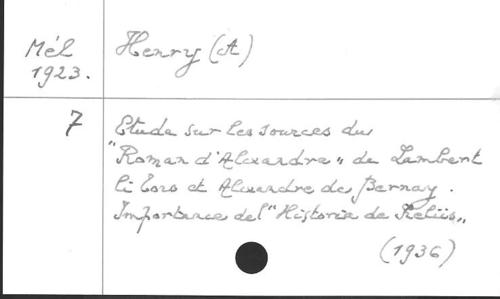 Mél Henry (A)
1923.
7 Etude sur les sources du
"Roman d'Alexandre" de Lambert
li Tors et Alexandre de Bernay.
Importance de l'"Historia de Preliis"
(1936)